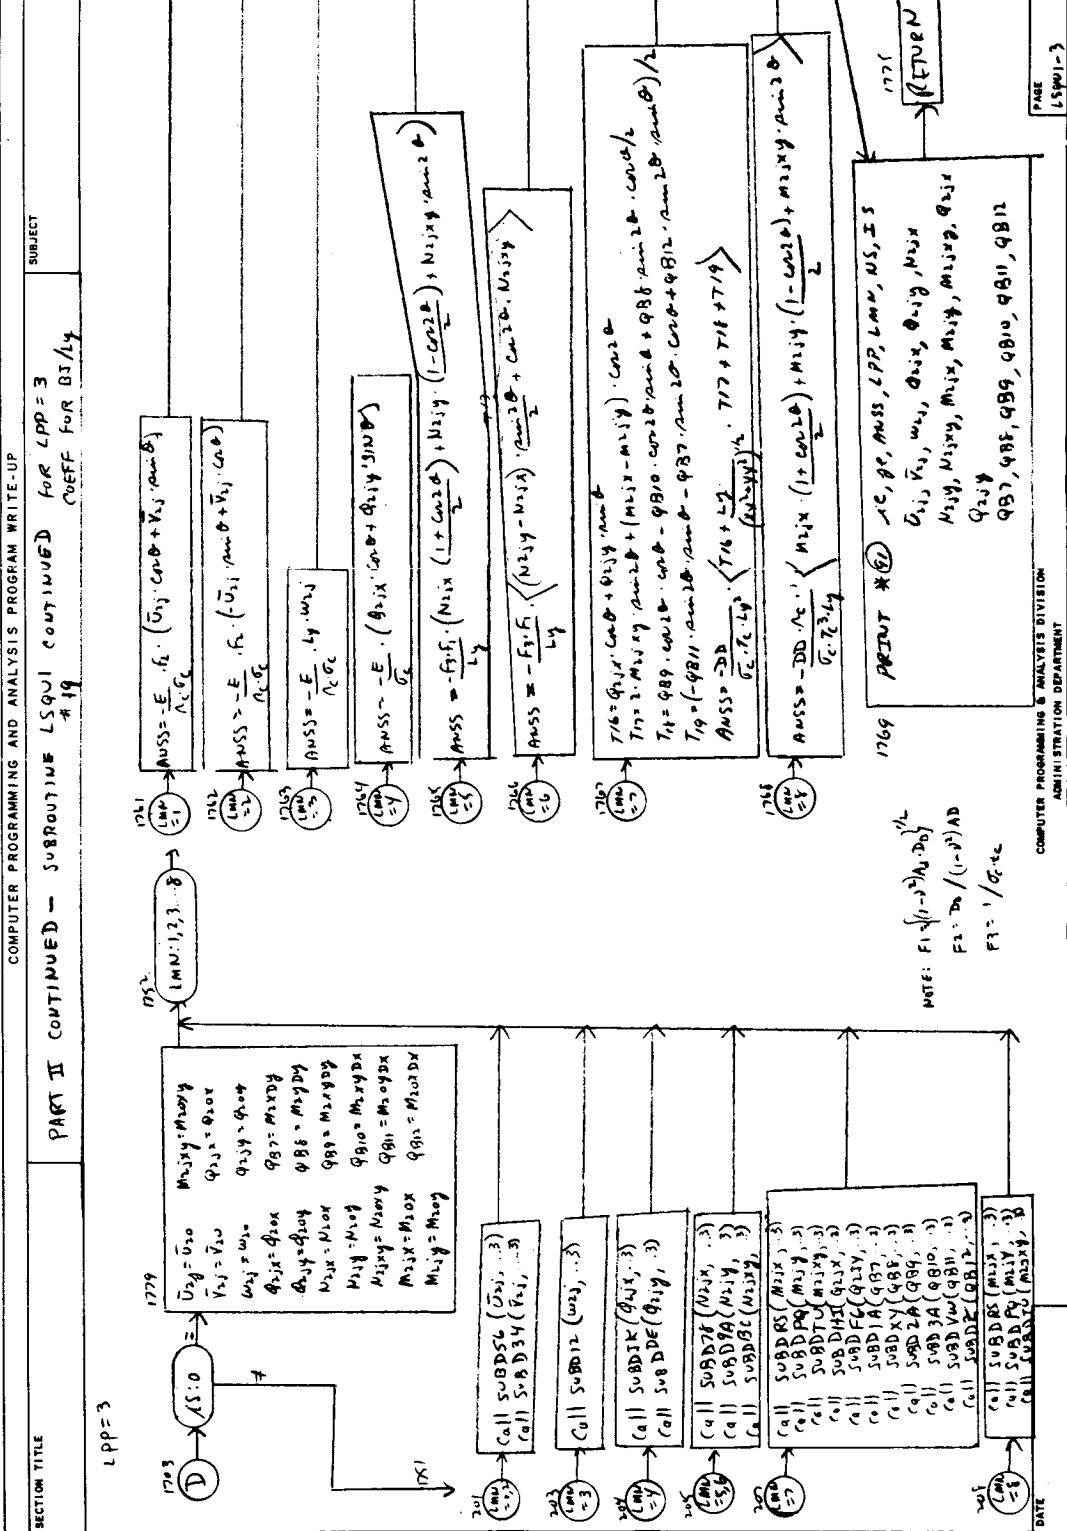 COMPUTER PROGRAMMING AND ANALYSIS PROGRAM WRITE-UP
SECTION TITLE
SUBJECT
PART II CONTINUED — SUBROUTINE LSQUI CONTINUED FOR LPP = 3
#19 COEFF FOR BJ/Ly
LPP=3
1703
D
IS:0
=
≠
1751
1779
Ū2j = Ū20
V̄2j = V̄20
W2j = W20
Q2jx = Q20x
Q2jy = Q20y
N2jx = N20x
N2jy = N20y
N2jxy = N20xy
M2jx = M20x
M2jy = M20y
M2jxy = M20xy
QB7 = M2xDy
QB8 = M2yDy
QB9 = M2xyDy
QB10 = M2xyDx
QB11 = M20yDx
QB12 = M20xDx
1752
LMN:1,2,3...8
201
Call SUBD56 (Ū2j, ..3)
Call SUBD34 (V̄2j, ..3)
203
LMN =3
Call SUBD12 (W2j, ..3)
204
LMN =4
Call SUBDJK (Q2jx, ..3)
Call SUBDDE (Q2jy, ..3)
205
LMN =5,6
Call SUBD78 (N2jx, ..3)
Call SUBD9A (N2jy, ..3)
Call SUBDBC (N2jxy, ..3)
207
LMN =7
Call SUBDRS (M2jx, ..3)
Call SUBDPQ (M2jy, ..3)
Call SUBDTU (M2jxy, ..3)
Call SUBDHI (Q2jx, ..3)
Call SUBDFG (Q2jy, ..3)
Call SUBD1A (QB7, ..3)
Call SUBDXY (QB8, ..3)
Call SUBD2A (QB9, ..3)
Call SUBD3A (QB10, ..3)
Call SUBDVW (QB11, ..3)
208
LMN =8
Call SUBDRS (M2jx, ..3)
Call SUBDPQ (M2jy, ..3)
Call SUBDTU (M2jxy, ..3)
1761
LMN =1
ANSS = -E/rc·σc · F2 · (Ū2j · cosθ + V̄2j · sinθ)
1762
LMN =2
ANSS = -E/rc·σc · F2 · (-Ū2j · sinθ + V̄2j · cosθ)
1763
LMN =3
ANSS = -E/rc·σc · Ly · W2j
1764
LMN =4
ANSS = -E/σc · (Q2jx · cosθ + Q2jy · SINθ)
1765
LMN =5
ANSS = -F3·F1/Ly · (N2jx (1 + cos2θ)/2) + N2jy · (1 - cos2θ)/2) + N2jxy · sin2θ)
1766
LMN =6
ANSS = -F3·F1/Ly · ((N2jy - N2jx) · sin2θ/2 + cos2θ · N2jxy)
1767
LMN =7
T16 = Q2jx · cosθ + Q2jy · sinθ
T17 = 2 · M2jxy · sin2θ + (M2jx - M2jy) · cos2θ
T18 = QB9 · cos2θ · cosθ - QB10 · cos2θ · sinθ + QB8 · sin2θ · cosθ/2
T19 = (-QB11 · sin2θ · sinθ - QB7 · sin2θ · cosθ + QB12 · sin2θ · sinθ)/2
1768
LMN =8
ANSS = -DD · rc/σc·rc³·Ly · (M2jx · (1 + cos2θ)/2) + M2jy · (1 - cos2θ)/2 + M2jxy · sin2θ)
1769
PRINT *
ANSS, LPP, LMN, NS, IS
Ū2j, V̄2j, W2j, Q2jx, Q2jy, N2jx
N2jy, N2jxy, M2jx, M2jy, M2jxy, Q2jx
Q2jy
QB7, QB8, QB9, QB10, QB11, QB12
1771
RETURN
NOTE:
F2 = DD/(1-ν²)AD
F3 = 1/σc·tc
COMPUTER PROGRAMMING & ANALYSIS DIVISION
ADMINISTRATION DEPARTMENT
DATE
PAGE
LSQUI-3